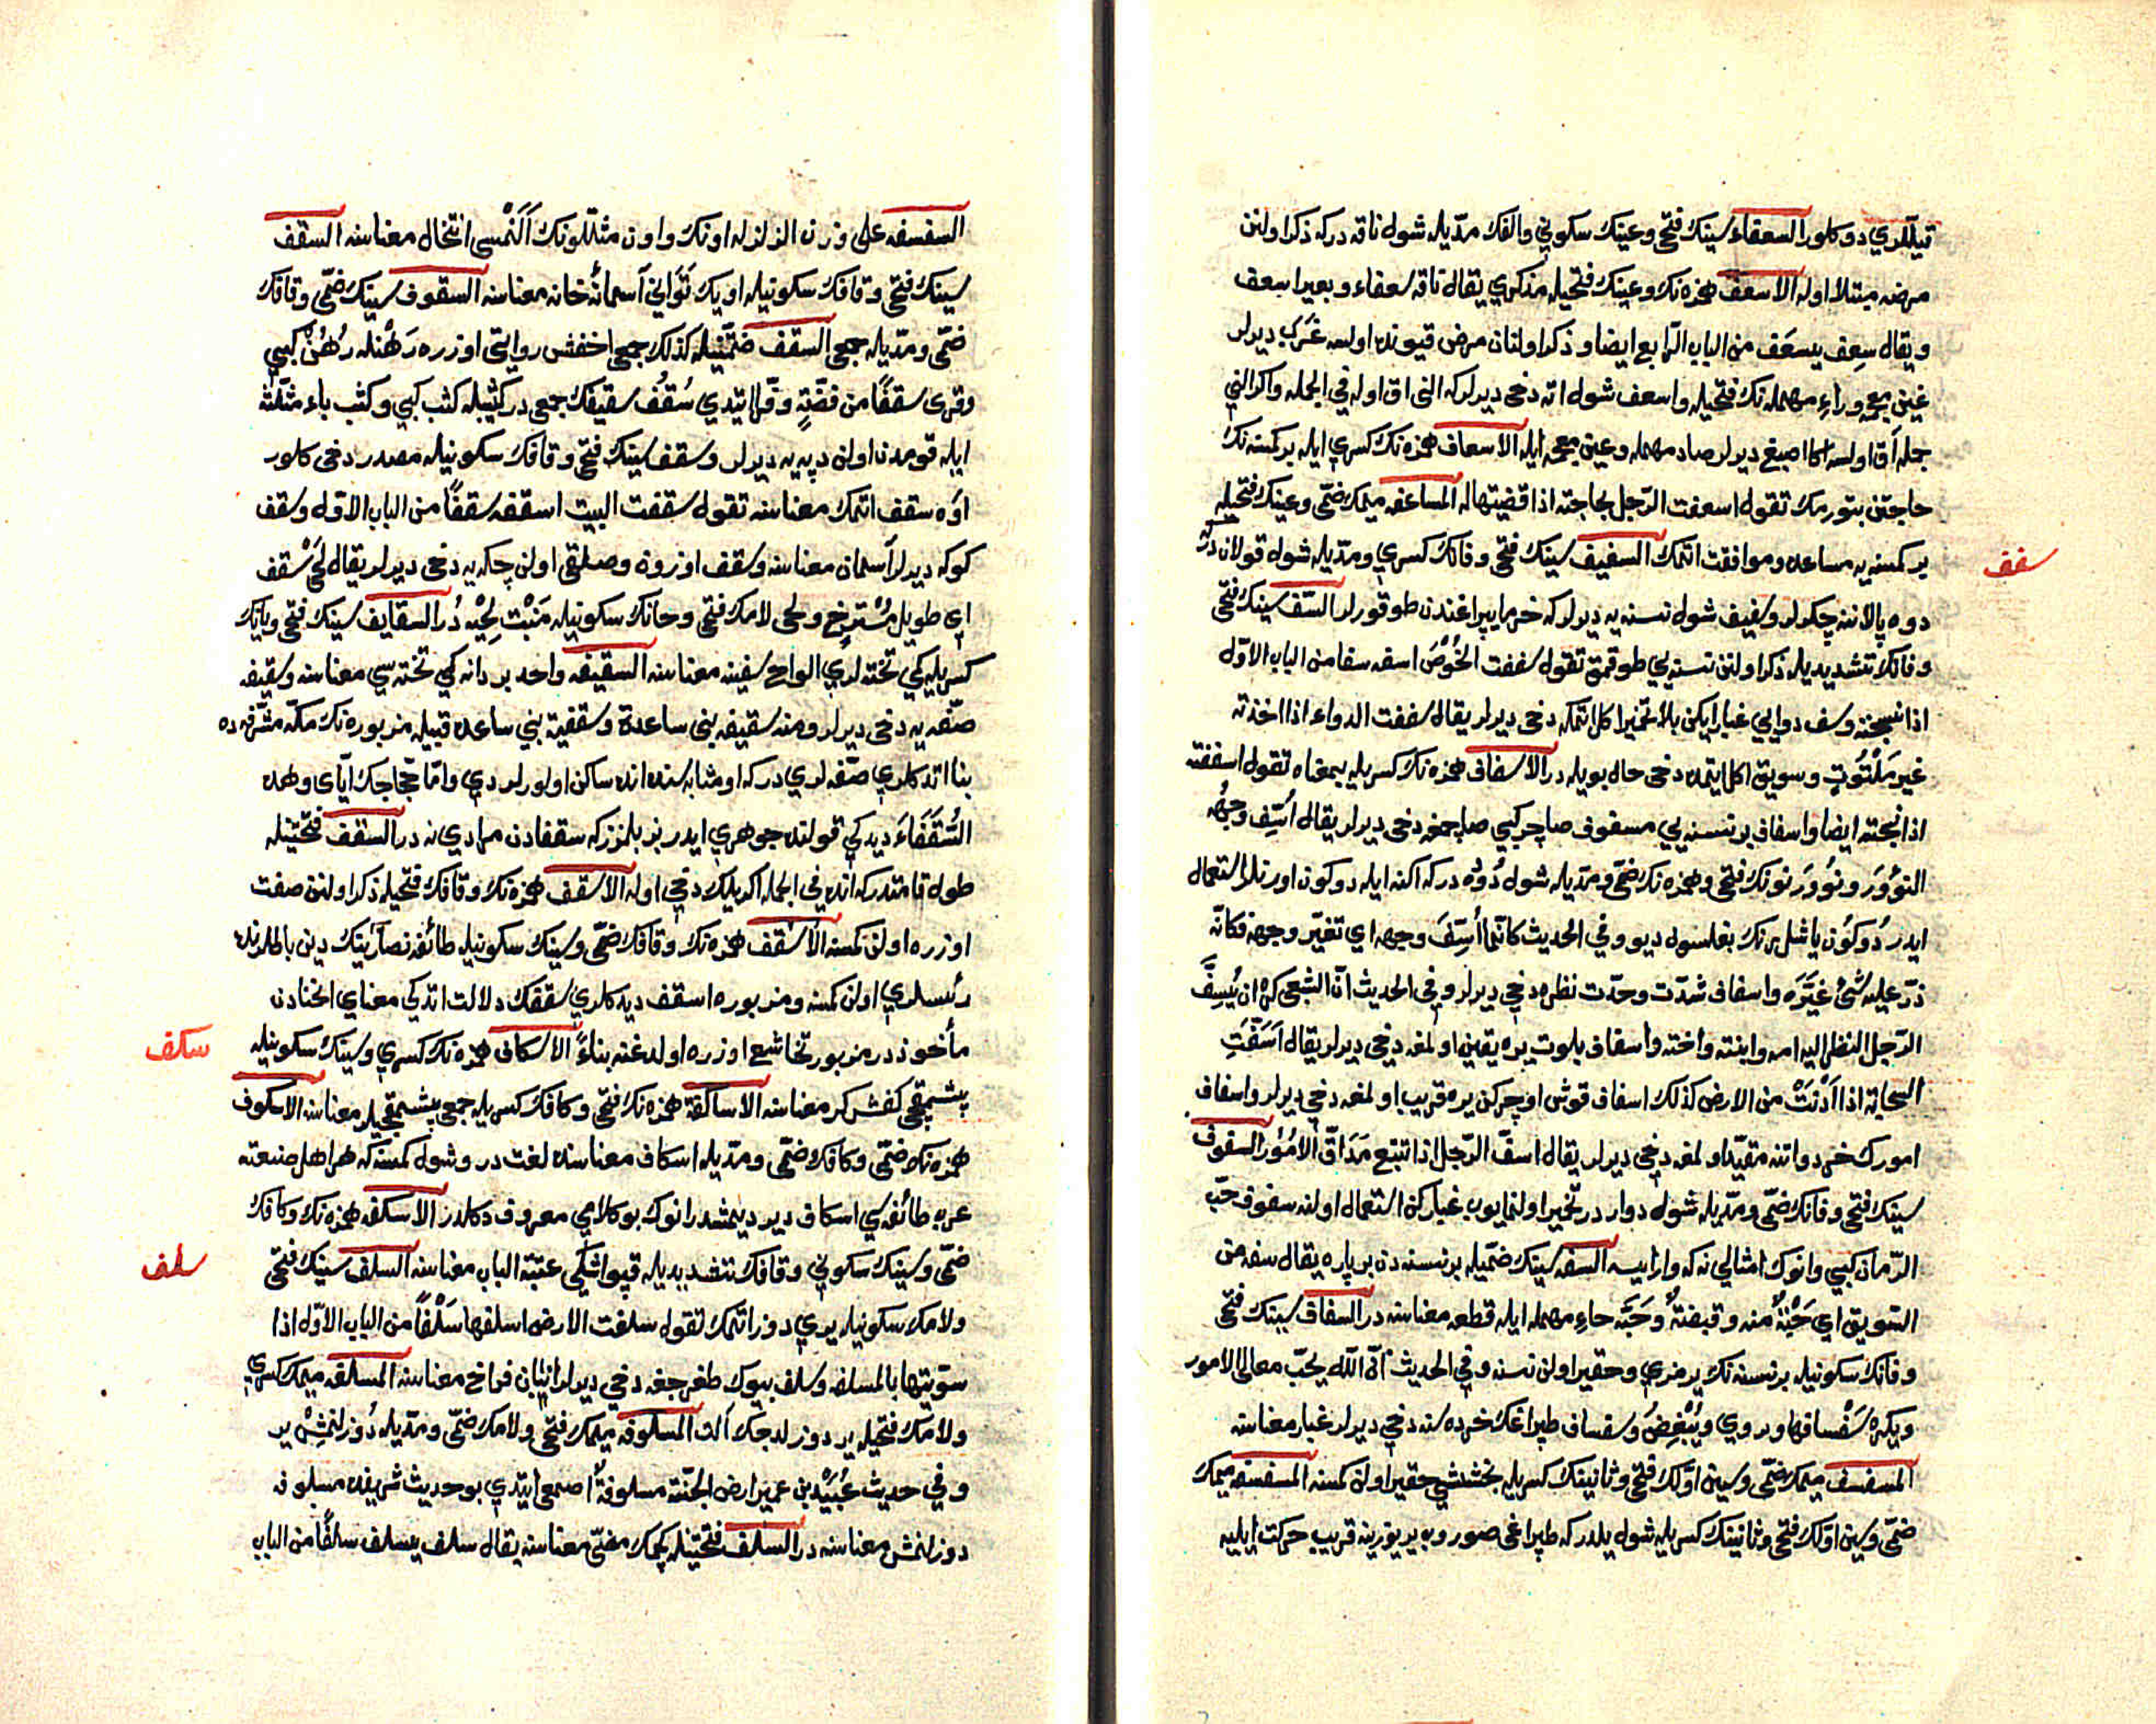 قيللري دوكلور السعفاء سينك فتحى وعينك سكوني والفك مدّيله شول ناقه دركه ذكر اولنن
مرضه مبتلا اوله الاسعف همزه نك وعينك فتحيله مذكري يقال ناقه سعفاء وبعير اسعف
ويقال سعِف يسعَف من الباب الرّابع ايضا و ذكر اولنان مرض قيونده اولسه غَرَب ديرلر
غين معجمه وراءِ مهمله نك فتحيله واسعف شول اته دخى ديرلركه النى اق اوله في الجمله واكر النى
جمله آق اولسه اكا اصبغ ديرلر صاد مهمله وعين معجمه ايله الاسعاف همزه نك كسرى ايله بر كمسنه نك
حاجتن بتورمك تقول اسعفت الرّجل بحاجته اذا قضيتها له المساعفه ميمك ضمّى وعينك فتحيله
بر كمسنه يه مساعده وموافقت اتمك السفيف سينك فتحى وفانك كسرى ومدّيله شول قولاندر
سفف
دوه پالاننه چكرلر وسفيف شول نسنه يه ديرلركه خرما يپراغندن طوقورلر السّف سينك فتحى
وفانك تشديديله ذكر اولنن نسنه يي طوقمق تقول سففت الخُوْصَ اسفه سفا من الباب الاوّل
اذا نسجته وسف دوايي غبار ايكن بلا تخمير اكل اتمكه دخى ديرلر يقال سففت الدواء اذا اخذته
غير مَلْتُوتٍ وسويق اكل ايتمده دخى حال بويله در الاسفاف همزه نك كسريله بمعناه تقول اسففته
اذا نسجته ايضا واسفاف بر نسنه يي مسفوف صاچر كبي صاچمغه دخى ديرلر يقال اُسِّف وجهُه
النؤور ونوور نونك فتحى وهمزه نك ضمّى ومدّيله شول دُوْده دركه اكنه ايله دوكون اورنلر استعمال
ايدر دُوكُون ياشل رنك بغلسون ديو و في الحديث كانّما اُسِّفَ وجهه اي تغيّر وجهه فكانّه
ذرّ عليه شئ غيّره واسفاف شدّت وحدّت نظره دخى ديرلر و في الحديث انّ الشعبى كره ان يُسِفَّ
الرّجل النظر اليه امه وابنته واخته واسفاف بلوت يره يقين اولمغه دخى ديرلر يقال اَسَفَّتِ
السحابة اذا اَدْنَتْ من الارض كذلك اسفاف قوش اوچركن يره قريب اولمغه دخى ديرلر واسفاف
امورك خرد واتنه مقيّد اولمغه دخى ديرلر يقال اسفّ الرّجل اذا تتبع مَدَاقَّ الامُوْر السفوف
سينك فتحى وفانك ضمّى ومدّيله شول دوادر درتخمير اولنمايوب غبار كن استعمال اولنه سفوف حبّ
الرّمان كبي وانوك امثالي نه كه وار ايسه السفه سينك ضمّيله بر نسنه دن بر پاره يقال سفه من
السّويق اي حَبَّةٌ منه وقبضةٌ وحَبَّه حاءِ مهمله ايله قطعه معناسنه در السفاف سينك فتحى
وفانك سكونيله بر نسنه نك يرمزي وحقير اولن نسنه و في الحديث انّ اللّه يحبّ معالى الامور
ويكره سَفْسافها وروي ويُبْغِضُ وسفساف طپراغك خرده سنه دخى ديرلر غبار معناسنه
المسفسف ميمك ضمّى وسين اوّلك فتحى وثانينك كسريله بخششى حقير اولن كمسنه المسفسفه ميمك
ضمّى وسين اوّلك فتحى وثانينك كسريله شول يلدركه طپراغى صوروب ير يوزينه قريب حركت ايليه
السفسفه على وزن الزلزله اونك واون مثللونك اَلَنْمسى انتخال معناسنه السقف
سينك فتحى وقافك سكونيله اويك تَوَانى آسمانهٔ خانه معناسنه السقوف سينك ضمّى وقافك
ضمّى ومدّيله جمعى السقف ضمّتينله كذلك جمعى اخفش روايتى اوزره رَهْنله رُهُنْ كبي
وقرى سقفًا من فضّةٍ و فرّا ايتدي سُقُف سقيفك جمعى در كثيبله كثب كبي وكثب باء مثلّثه
ايله قومدن اولن دپه يه ديرلر وسقف سينك فتحى وقافك سكونيله مصدر دخى كلور
اوه سقف اتمك معناسنه تقول سقفت البيت اسقفه سقفًا من الباب الاوّل وسقف
كوكه ديرلر آسمان معناسنه وسقف اوزون وصلقى اولن چكه يه دخى ديرلر يقال لَحْىٌ سَقْف
اي طويل مُسْترخٍ ولحى لامك فتحى وحانك سكونيله مَنْبَت لِحْيه دُر السقايف سينك فتحى ويانك
كسريله كمى تخته لري الواح سفينه معناسنه السقيفه واحد بر دانه كمى تخته سي معناسنه وسقيفه
صفّه يه دخى ديرلر ومنه سقيفه بنى ساعدة وسقيفۀ بني ساعده قبيله مزبوره نك مكّه مشرّفه ده
بنا اتدكلري صفّه لري دركه اومثابه سنده انده ساكن اولورلردي وامّا حجّاجك ايّاى وهذه
السُّقَفَاءَ ديدكى قولنده جوهري ايدر بز بلمزز كه سقفادن مرادي نه در السقف فتحتينله
طول قامتدركه انده في الجمله اكريلك دخى اوله الاسقف همزه نك وقافك فتحيله ذكر اولنن صفت
اوزره اولن كمسنه الاُسْقف همزه نك وقافك ضمّى وسينك سكونيله طائفۀ نصارٰينك دين باطلرنده
رئيسلري اولن كمسنه ومزبوره اسقف ديدكلري سقفك دلالت اتدكى معناى انحنادن
مأخوذ در مزبور تخاشع اوزره اولدغنه بناءً الاسكاف همزه نك كسرى وسينك سكونيله
سكف
پشمقجى كفشكر معناسنه الاساكفة همزه نك فتحى وكافك كسريله جمعى پشمقجيلر معناسنه الاسكوف
همزه نك ضمّى وكافك ضمّى ومدّيله اسكاف معناسنده لغت در وشول كمسنه كه هر اهل صنعته
عرب طائفه سي اسكاف دير ديمشدر انوك بو كلامي معروف دكلدر الاسكفه همزه نك وكافك
ضمّى وسينك سكوني وفانك تشديديله قپو اشكى عتبة الباب معناسنه السلف سينك فتحى
سلف
ولامك سكونيله يري دوز اتمك تقول سلفت الارض اسلفها سَلْفًا من الباب الاوّل اذا
سوّيتها بالمسلفه وسلف بيوك طغرجغه دخى ديرلر انبان فراخ معناسنه المسلفه ميمك كسرى
ولامك فتحيله ير دوزلدجك آلت المسلوفه ميمك فتحى ولامك ضمّى ومدّيله دُوزلنمِشْ ير
و في حديث عُبَيْد بن عمير ارض الجنّة مسلوفةٌ اصمعى ايتدي بو حديث شريفده مسلوفه
دوزلنمش معناسنه در السلف فتحتينله كچمك مضىّ معناسنه يقال سلف يسلف سلفًا من الباب